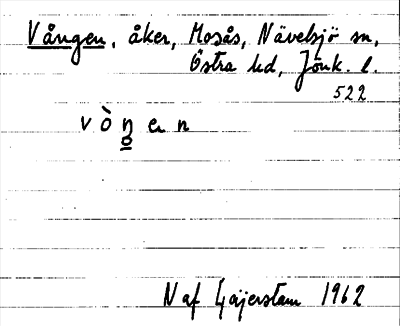 Vången, åker, Mosås, Nävelsjö sn,
Östra hd, Jönk. l.
522
vòŋen
N af Gäjerstam 1962